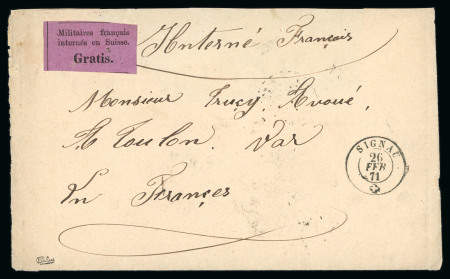 Militaires français
internés en Suisse.
Gratis.
Interné Français
Monsieur Trucy Avoué,
A Toulon. Var
En Françes
SIGNAU
26
FEB
71